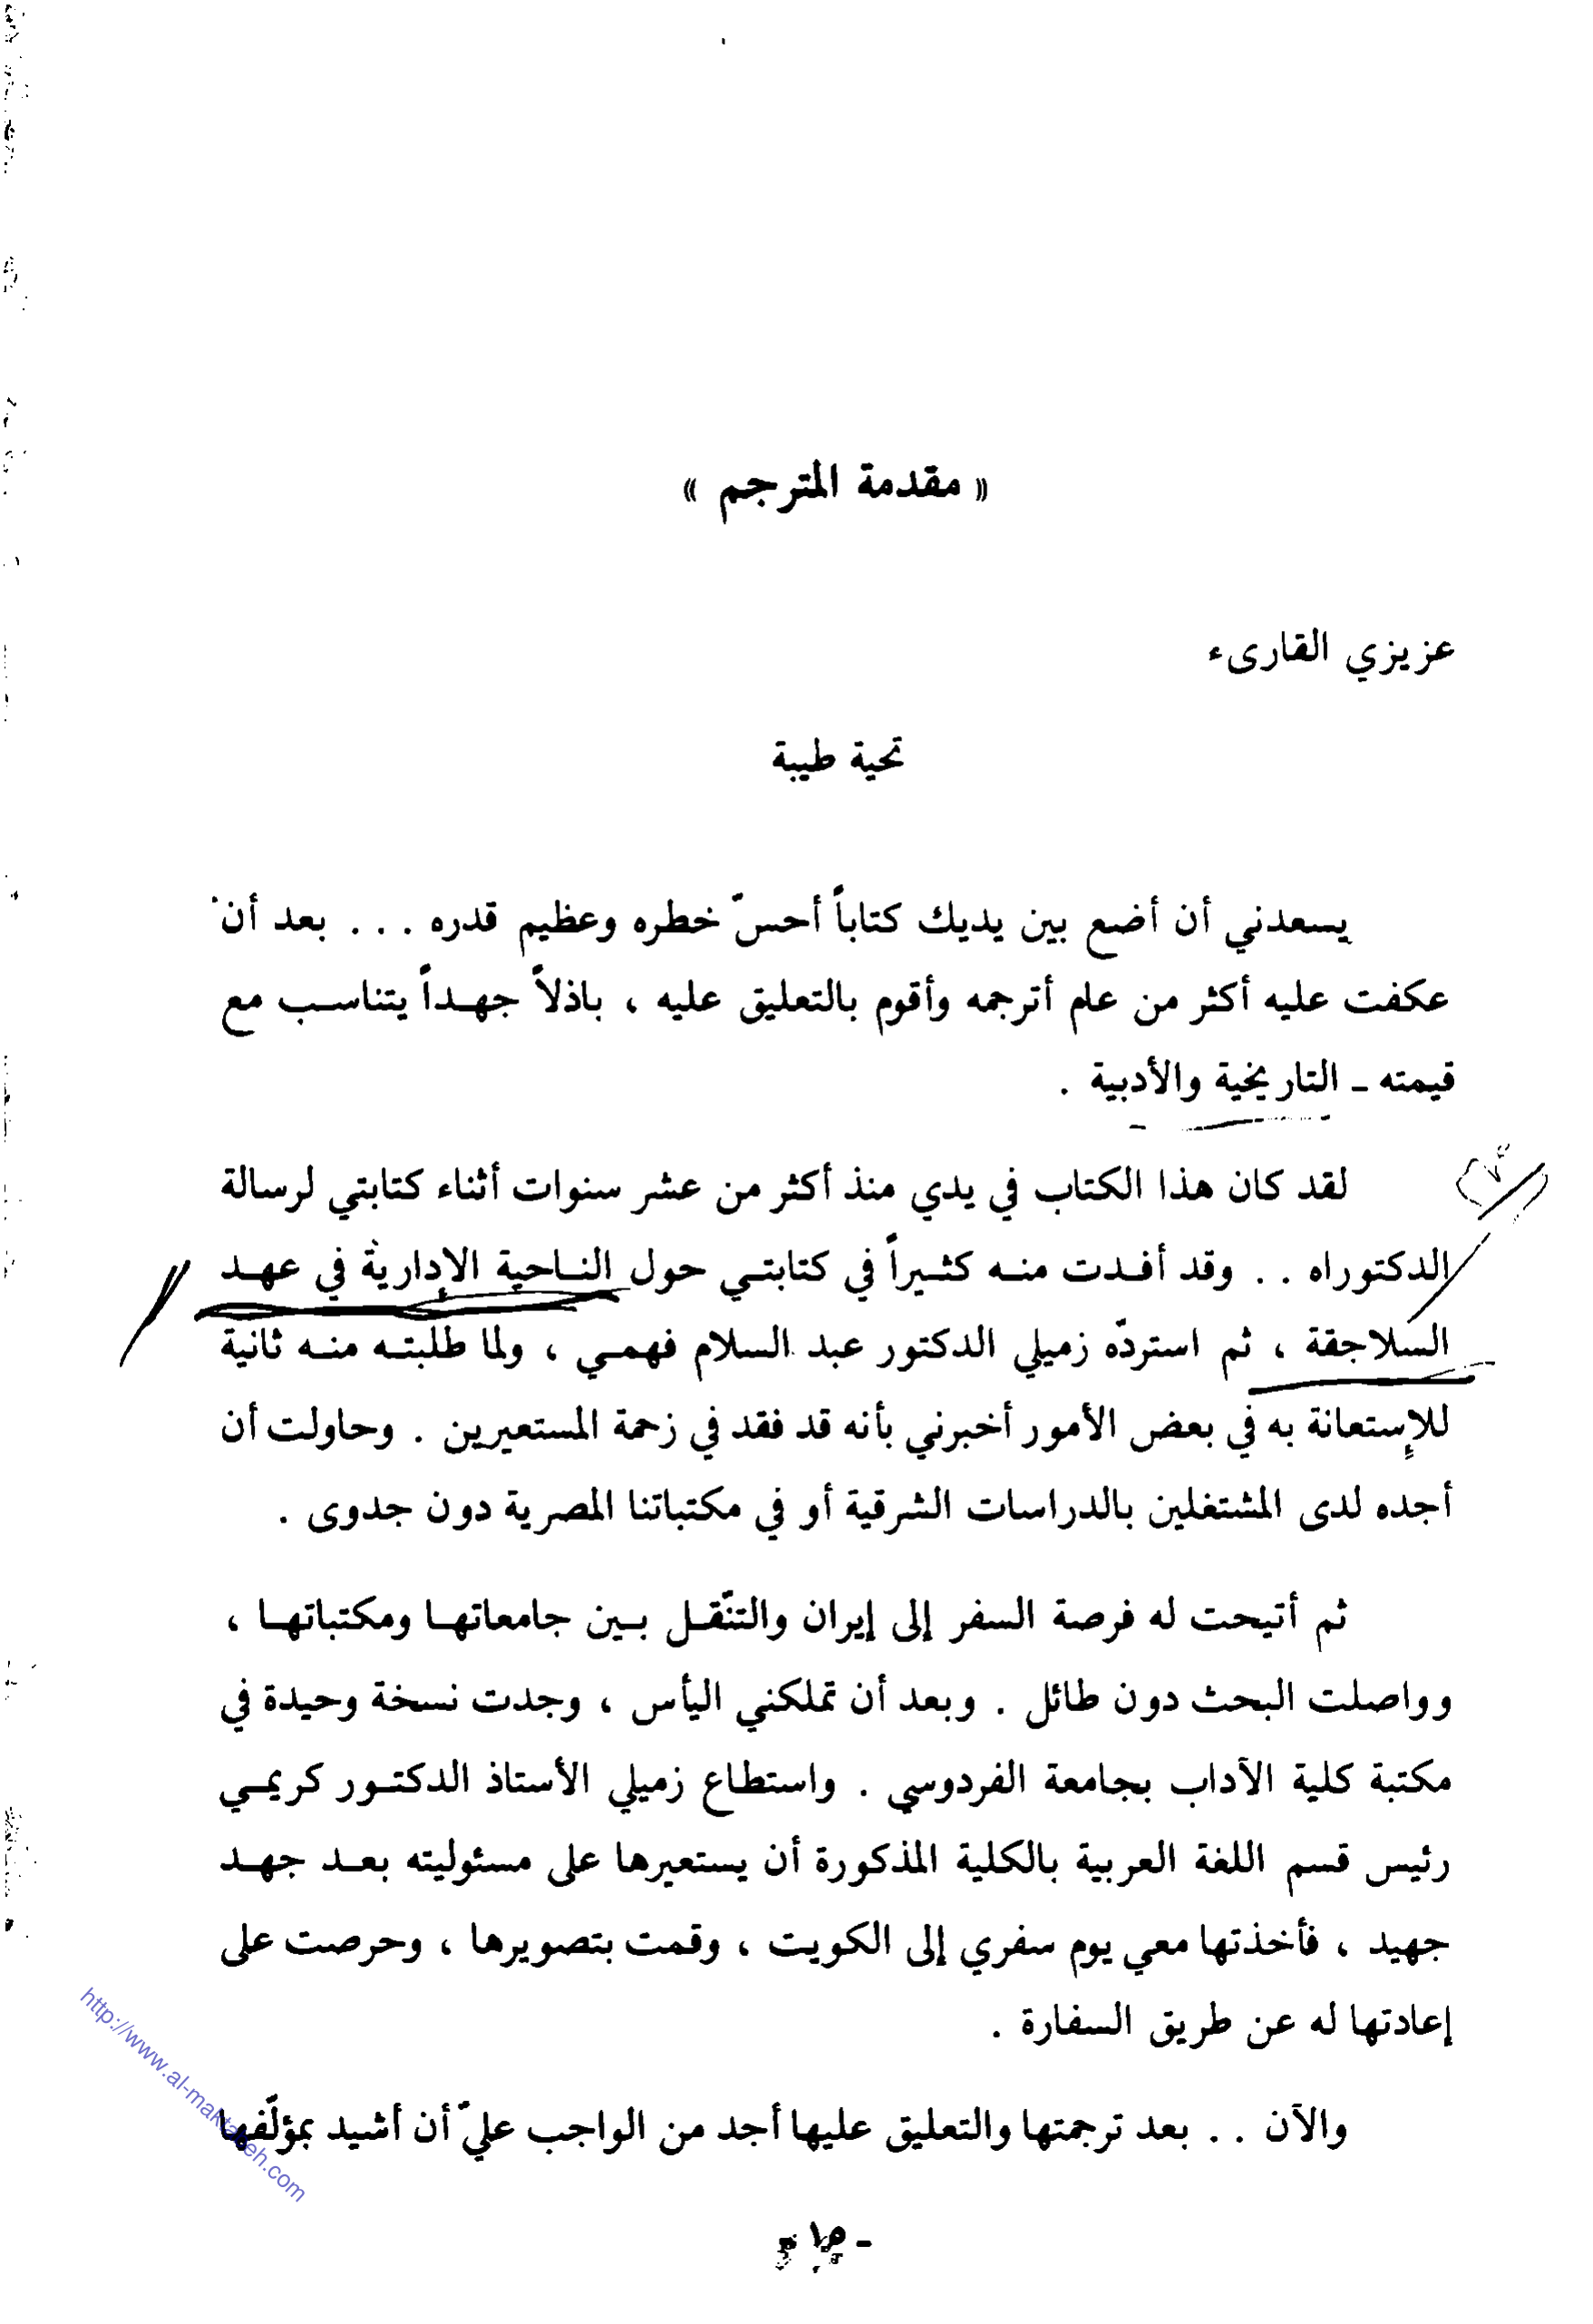 « مقدمة المترجم »
عزيزي القارىء
تحية طيبة
يسعدني أن أضع بين يديك كتاباً أحسّ خطره وعظيم قدره . . . بعد أن
عكفت عليه أكثر من عام أترجمه وأقوم بالتعليق عليه ، باذلاً جهداً يتناسب مع
قيمته ـ التاريخية والأدبية .
لقد كان هذا الكتاب في يدي منذ أكثر من عشر سنوات أثناء كتابتي لرسالة
الدكتوراه . . وقد أفدت منه كثيراً في كتابتي حول الناحية الإدارية في عهد
السلاجقة ، ثم استردّه زميلي الدكتور عبد السلام فهمي ، ولما طلبته منه ثانية
للإستعانة به في بعض الأمور أخبرني بأنه قد فقد في زحمة المستعيرين . وحاولت أن
أجده لدى المشتغلين بالدراسات الشرقية أو في مكتباتنا المصرية دون جدوى .
ثم أتيحت له فرصة السفر إلى إيران والتنّقل بين جامعاتها ومكتباتها ،
وواصلت البحث دون طائل . وبعد أن تملكني اليأس ، وجدت نسخة وحيدة في
مكتبة كلية الآداب بجامعة الفردوسي . واستطاع زميلي الأستاذ الدكتور كريمي
رئيس قسم اللغة العربية بالكلية المذكورة أن يستعيرها على مسئوليته بعد جهد
جهيد ، فأخذتها معي يوم سفري إلى الكويت ، وقمت بتصويرها ، وحرصت على
إعادتها له عن طريق السفارة .
والآن . . بعد ترجمتها والتعليق عليها أجد من الواجب عليّ أن أشيد بمؤلّفها
http://www.al-maktabeh.com